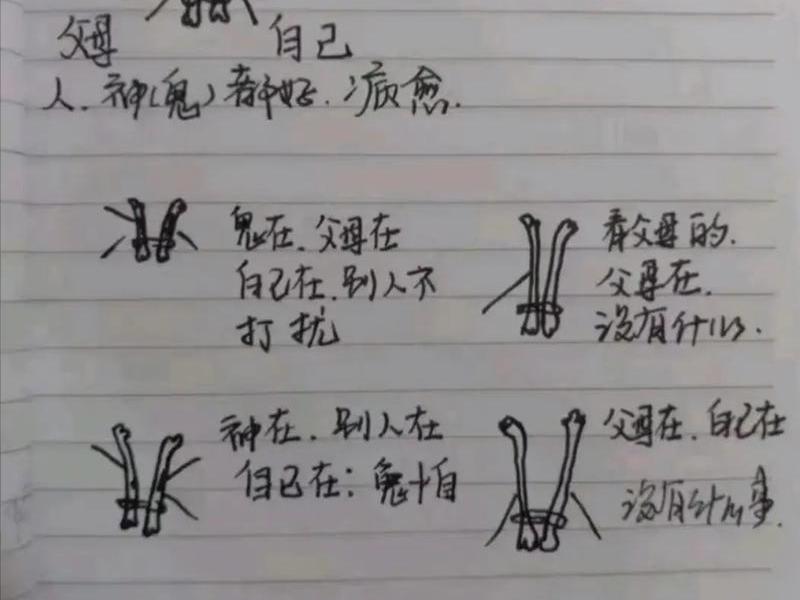 父母 自己
人、神(鬼)都好.病愈.
鬼在.父母在
自己在.别人不
打扰
看父母的.
父母在.
没有什么.
神在.别人在
自己在:鬼十自
父母在.自己在
没有什么事.